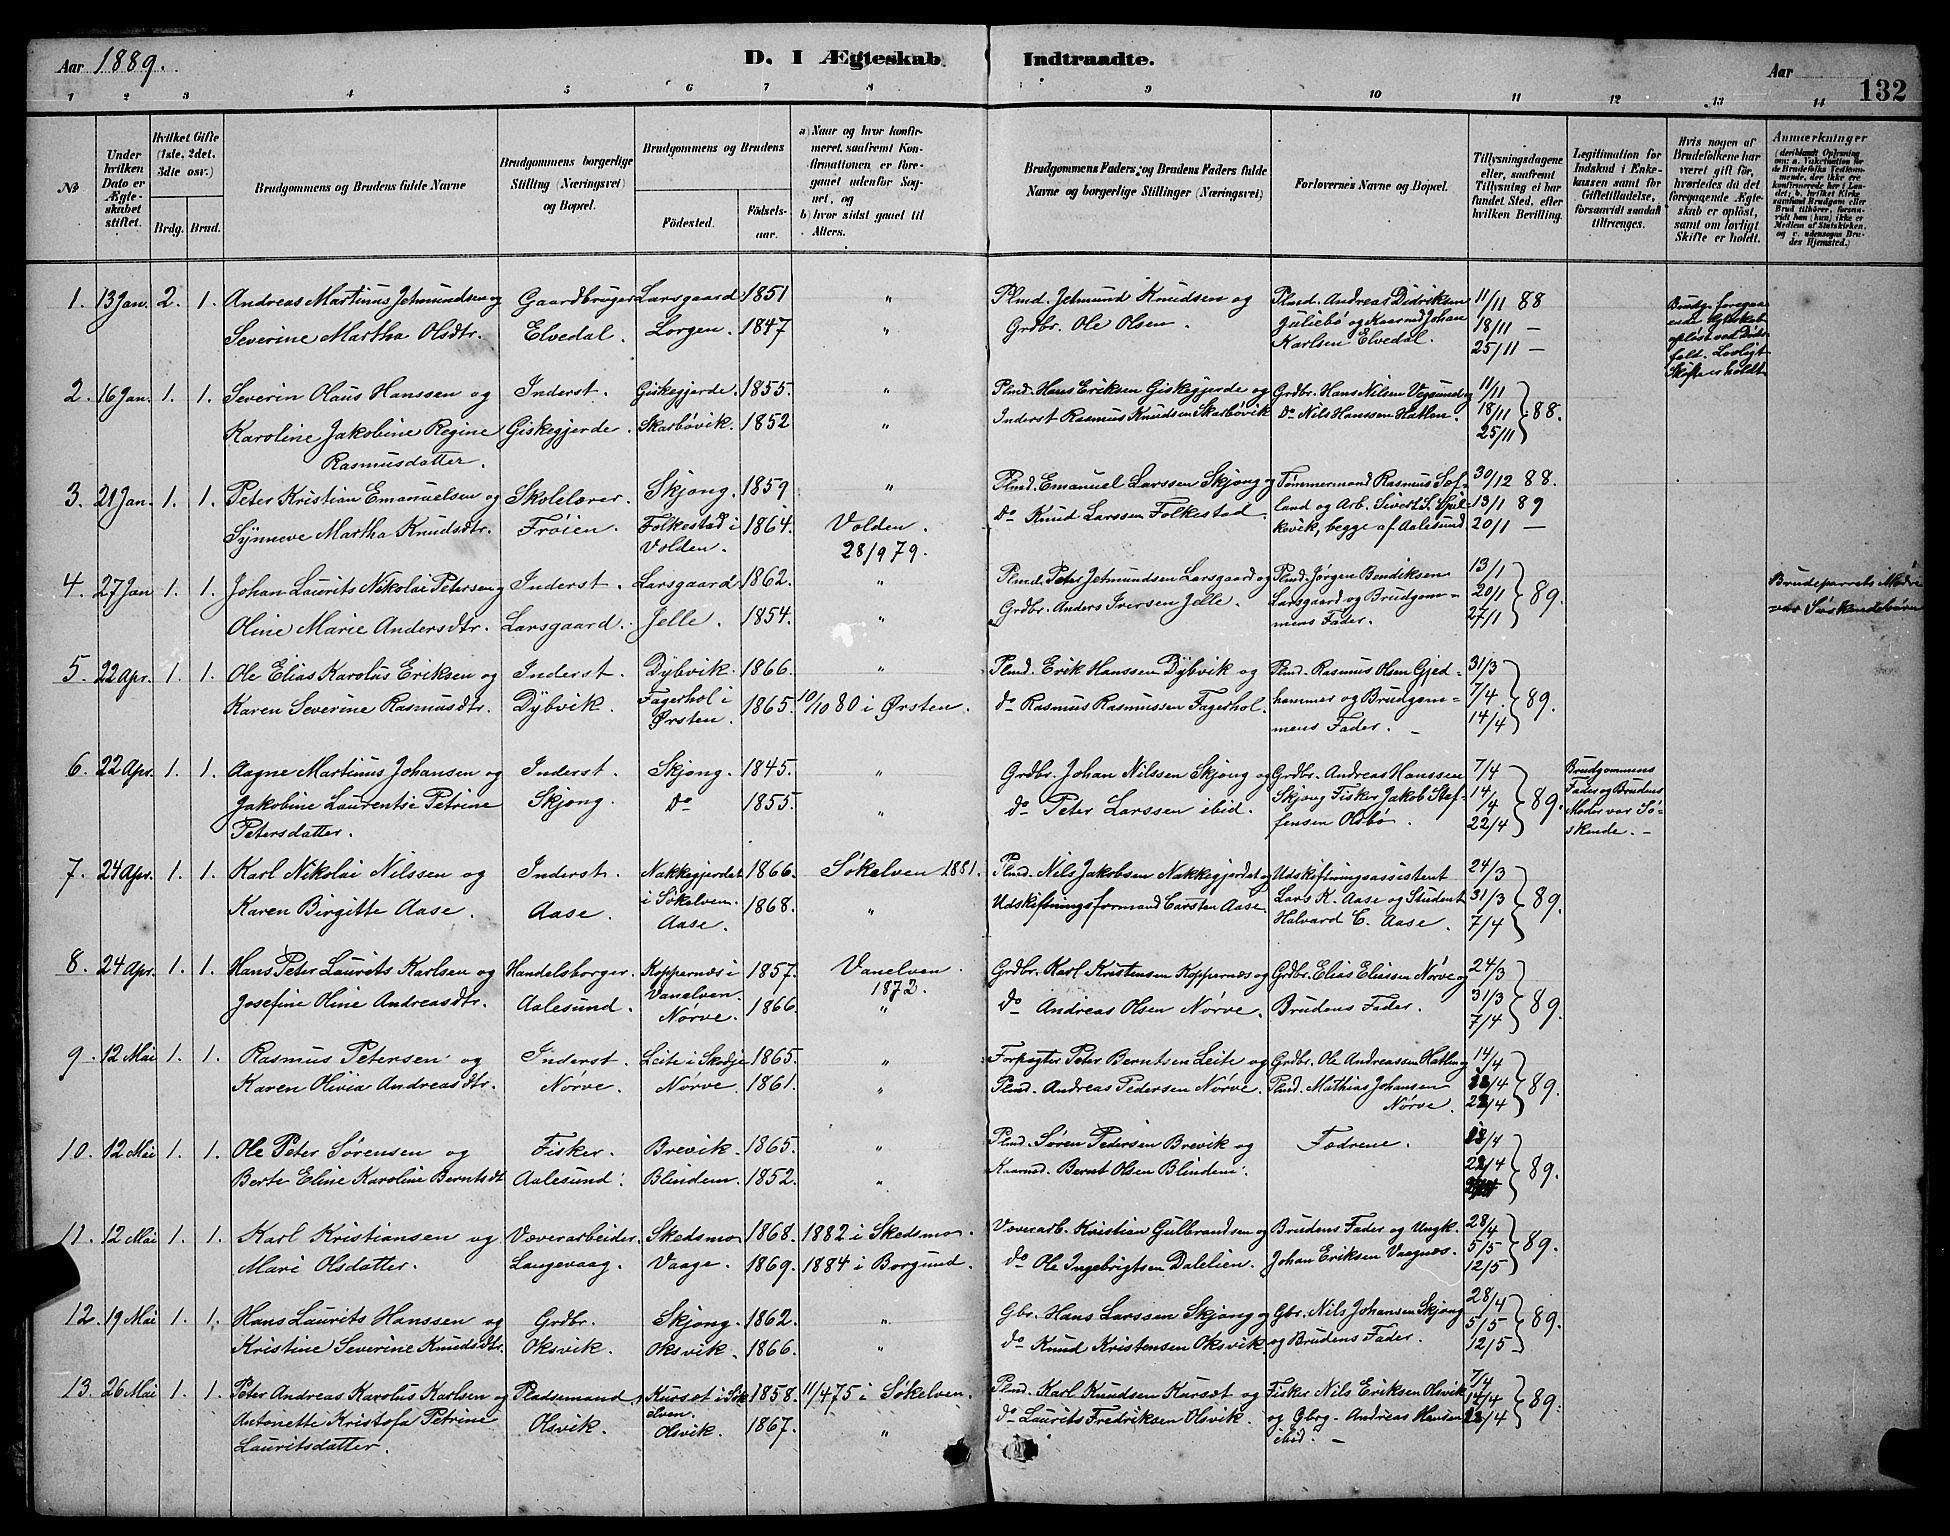 Aar 1889.
D. I Ægteskab Indtraadte.
Aar
132
1 2 3 4 5 6 7 8 9 10 11 12 13 14
No
Under hvilken Dato er Ægteskabet stiftet.
Hvilket Gifte (1ste, 2det, 3die osv.)
Brdg. Brud.
Brudgommens og Brudens fulde Navne
Brudgommens borgerlige Stilling (Næringsvei) og Bopæl.
Brudgommens og Brudens
Födested. Födselsaar.
a) Naar og hvor konfirmeret, saafremt Konfirmationen er foregaaet udenfor Sognet, og
b) hvor sidst gaaet til Alters.
Brudgommens Faders, og Brudens Faders fulde Navne og borgerlige Stillinger (Næringsvei)
Forlovernes Navne og Bopæl.
Tillysningsdagene eller, saafremt Tillysning ei har fundet Sted, efter hvilken Bevilling.
Legitimation for Indskud i Enkekassen samt for Giftetilladelse, forsaavidt saadan tiltrænges.
Hvis nogen af Brudefolkene har været gift før, hvorledes da det foregaaende Ægteskab er opløst, samt om lovligt Skifte er holdt.
Anmærkninger
1. 13 Jan. 2. 1. Andreas Martinus Jetmundsen og Gaardbruger Larsgaard 1851 " Plmd. Jetmund Knudsen og Plmd. Andreas Didriksen 11/11 88
Severine Martha Olsdtr. Elvedal. Lorgen. 1847 " Grdbr. Ole Olsen. Juliebø og Kaarmd Johan 18/11 —
Karlsen Elvedal. 25/11 —
Brudg. foregaaende Ægteskab opløst ved Dødsfald. Lovligt Skifte er holdt
2. 16 Jan. 1. 1. Severin Olaus Hanssen og Inderst. Giskegjerde 1855. " Plmd. Hans Eriksen Giskegjerde og Grdbr. Hans Nilsen Vegsund og 11/11
Karoline Jakobine Regine Giskegjerde. Skarbövik. 1852 " Inderst Rasmus Knudsen Skarbövik do Nils Hanssen Hatlen. 18/11 88.
Rasmusdatter. 25/11
3. 21 Jan. 1. 1. Peter Kristian Emanuelsen og Skolelærer. Skjong. 1859 " Plmd. Emanuel Larssen Skjong og Tømmermand Rasmus Sol- 30/12 88.
Synneve Martha Knudsdtr. Frøien. Folkestad i 1864. Volden. do Knud Larssen Folkestad. land og Arb. Sivert S. Spil- 13/1 89
Volden. 28/9 79. kevik, begge af Aalesund 20/1 —
4. 27 Jan 1. 1. Johan Laurits Nikolai Petersen og Inderst. Larsgaard 1862. " Plmd. Peter Jetmundsen Larsgaard og Plmd. Jørgen Bendiksen 13/1
Oline Marie Andersdtr. Larsgaard. Jelle. 1854. " Grdbr. Anders Iversen Jelle. Larsgaard og Brudgom- 20/1 89.
mens Fader. 27/1
Brudeparrets Mødre var Søskendebørn
5. 22 Apr. 1. 1. Ole Elias Karolus Eriksen og Inderst. Dybvik. 1866. " Plmd. Erik Hanssen Dybvik og Plmd. Rasmus Olsen Gjed- 31/3
Karen Severine Rasmusdtr. Dybvik. Fagerhol i Ørsten. 1865. 10/10 80 i Ørsten. do Rasmus Rasmussen Fagerhol. hammer og Brudgom- 7/4 89.
mens Fader. 14/4
6. 22 Apr. 1. 1. Aagne Martinus Johansen og Inderst. Skjong. 1845. " Grdbr. Johan Nilssen Skjong og Grdbr. Andreas Hanssen 7/4
Jakobine Laurentie Petrine Skjong. do 1855. " do Peter Larssen ibid. Skjong Fisker Jakob Stef- 14/4 89.
Petersdatter. fensen Olsbø. 22/4
Brudgommens Fader og Brudens Moder var Søskende.
7. 24 Apr. 1. 1. Karl Nikolai Nilssen og Inderst. Nakkegjerdet 1866. Søkelven 1881. Plmd. Nils Jakobsen Nakkegjerdet og Udskiftningsassistent 24/3
Karen Birgitte Aase. Aase. i Søkelven. Aase. 1868. " Udskiftningsformand Carsten Aase. Lars K. Aase og Student 31/3 89.
Halvard C. Aase. 7/4
8. 24 Apr. 1. 1. Hans Peter Laurits Karlsen og Handelsborger. Koppernæs i 1857. Vanelven. Grdbr. Karl Kristensen Koppernæs og Grdbr. Elias Eliassen Nørve og 24/3
Josefine Oline Andreasdtr. Aalesund. Vanelven. Nørve. 1866. 1872. " do Andreas Olsen Nørve. Brudens Fader. 31/3 89.
7/4
9. 12 Mai 1. 1. Rasmus Petersen og Inderst. Leite i Skodje 1865. " Forpagter Peter Berntsen Leite og Grdbr. Ole Andreassen Hatlen og 14/4
Karen Olivia Andreasdtr. Nørve. Nørve. 1861. " Plmd. Andreas Pedersen Nørve. Plmd. Mathias Johansen 89.
Nørve. 22/4
10. 12 Mai 1. 1. Ole Peter Sørensen og Fisker. Brevik. 1865. " Plmd. Søren Pedersen Brevik og Fædrene.
Berte Eline Karoline Berntsdt. Aalesund. Blindem. 1852. " Kaarmd. Bernt Olsen Blindem. 22/4 89.
11. 12 Mai 1. 1. Karl Kristiansen og Væverarbeider. Skedsmo 1868. 1882 i Skedsmo. Væverarb. Kristian Gulbrandsen og Brudens Fader og Ungk. 28/4
Mari Olsdatter. Langevaag. Vaage. 1869. 1884 i Borgund. do Ole Ingebrigtsen Dalelien. Johan Eriksen Vaagnæs. 5/5 89.
12/5
12. 19 Mai 1. 1. Hans Laurits Hanssen og Grdbr. Skjong. 1862. " Gbr. Hans Larssen Skjong og Gbr. Nils Johansen Skjong 28/4
Kristine Severine Knudsdtr. Oksvik. Oksvik. 1866. " do Knud Kristensen Oksvik. og Brudens Fader. 5/5 89.
12/5
13. 26 Mai 1. 1. Peter Andreas Karolus Karlsen og Pladsemand. Kursæt i Søk- 1858. 11/4 75 i Søkelven. Plmd. Karl Knudsen Kursæt og Fisker Nils Eriksen Olsvik 7/4
Antonette Kristofa Petrine Olsvik. elven. Olsvik. 1867. " do Laurits Fredriksen Olsvik. og Gbrg. Andreas Hansen 14/4 89.
Lauritsdatter. ibid.